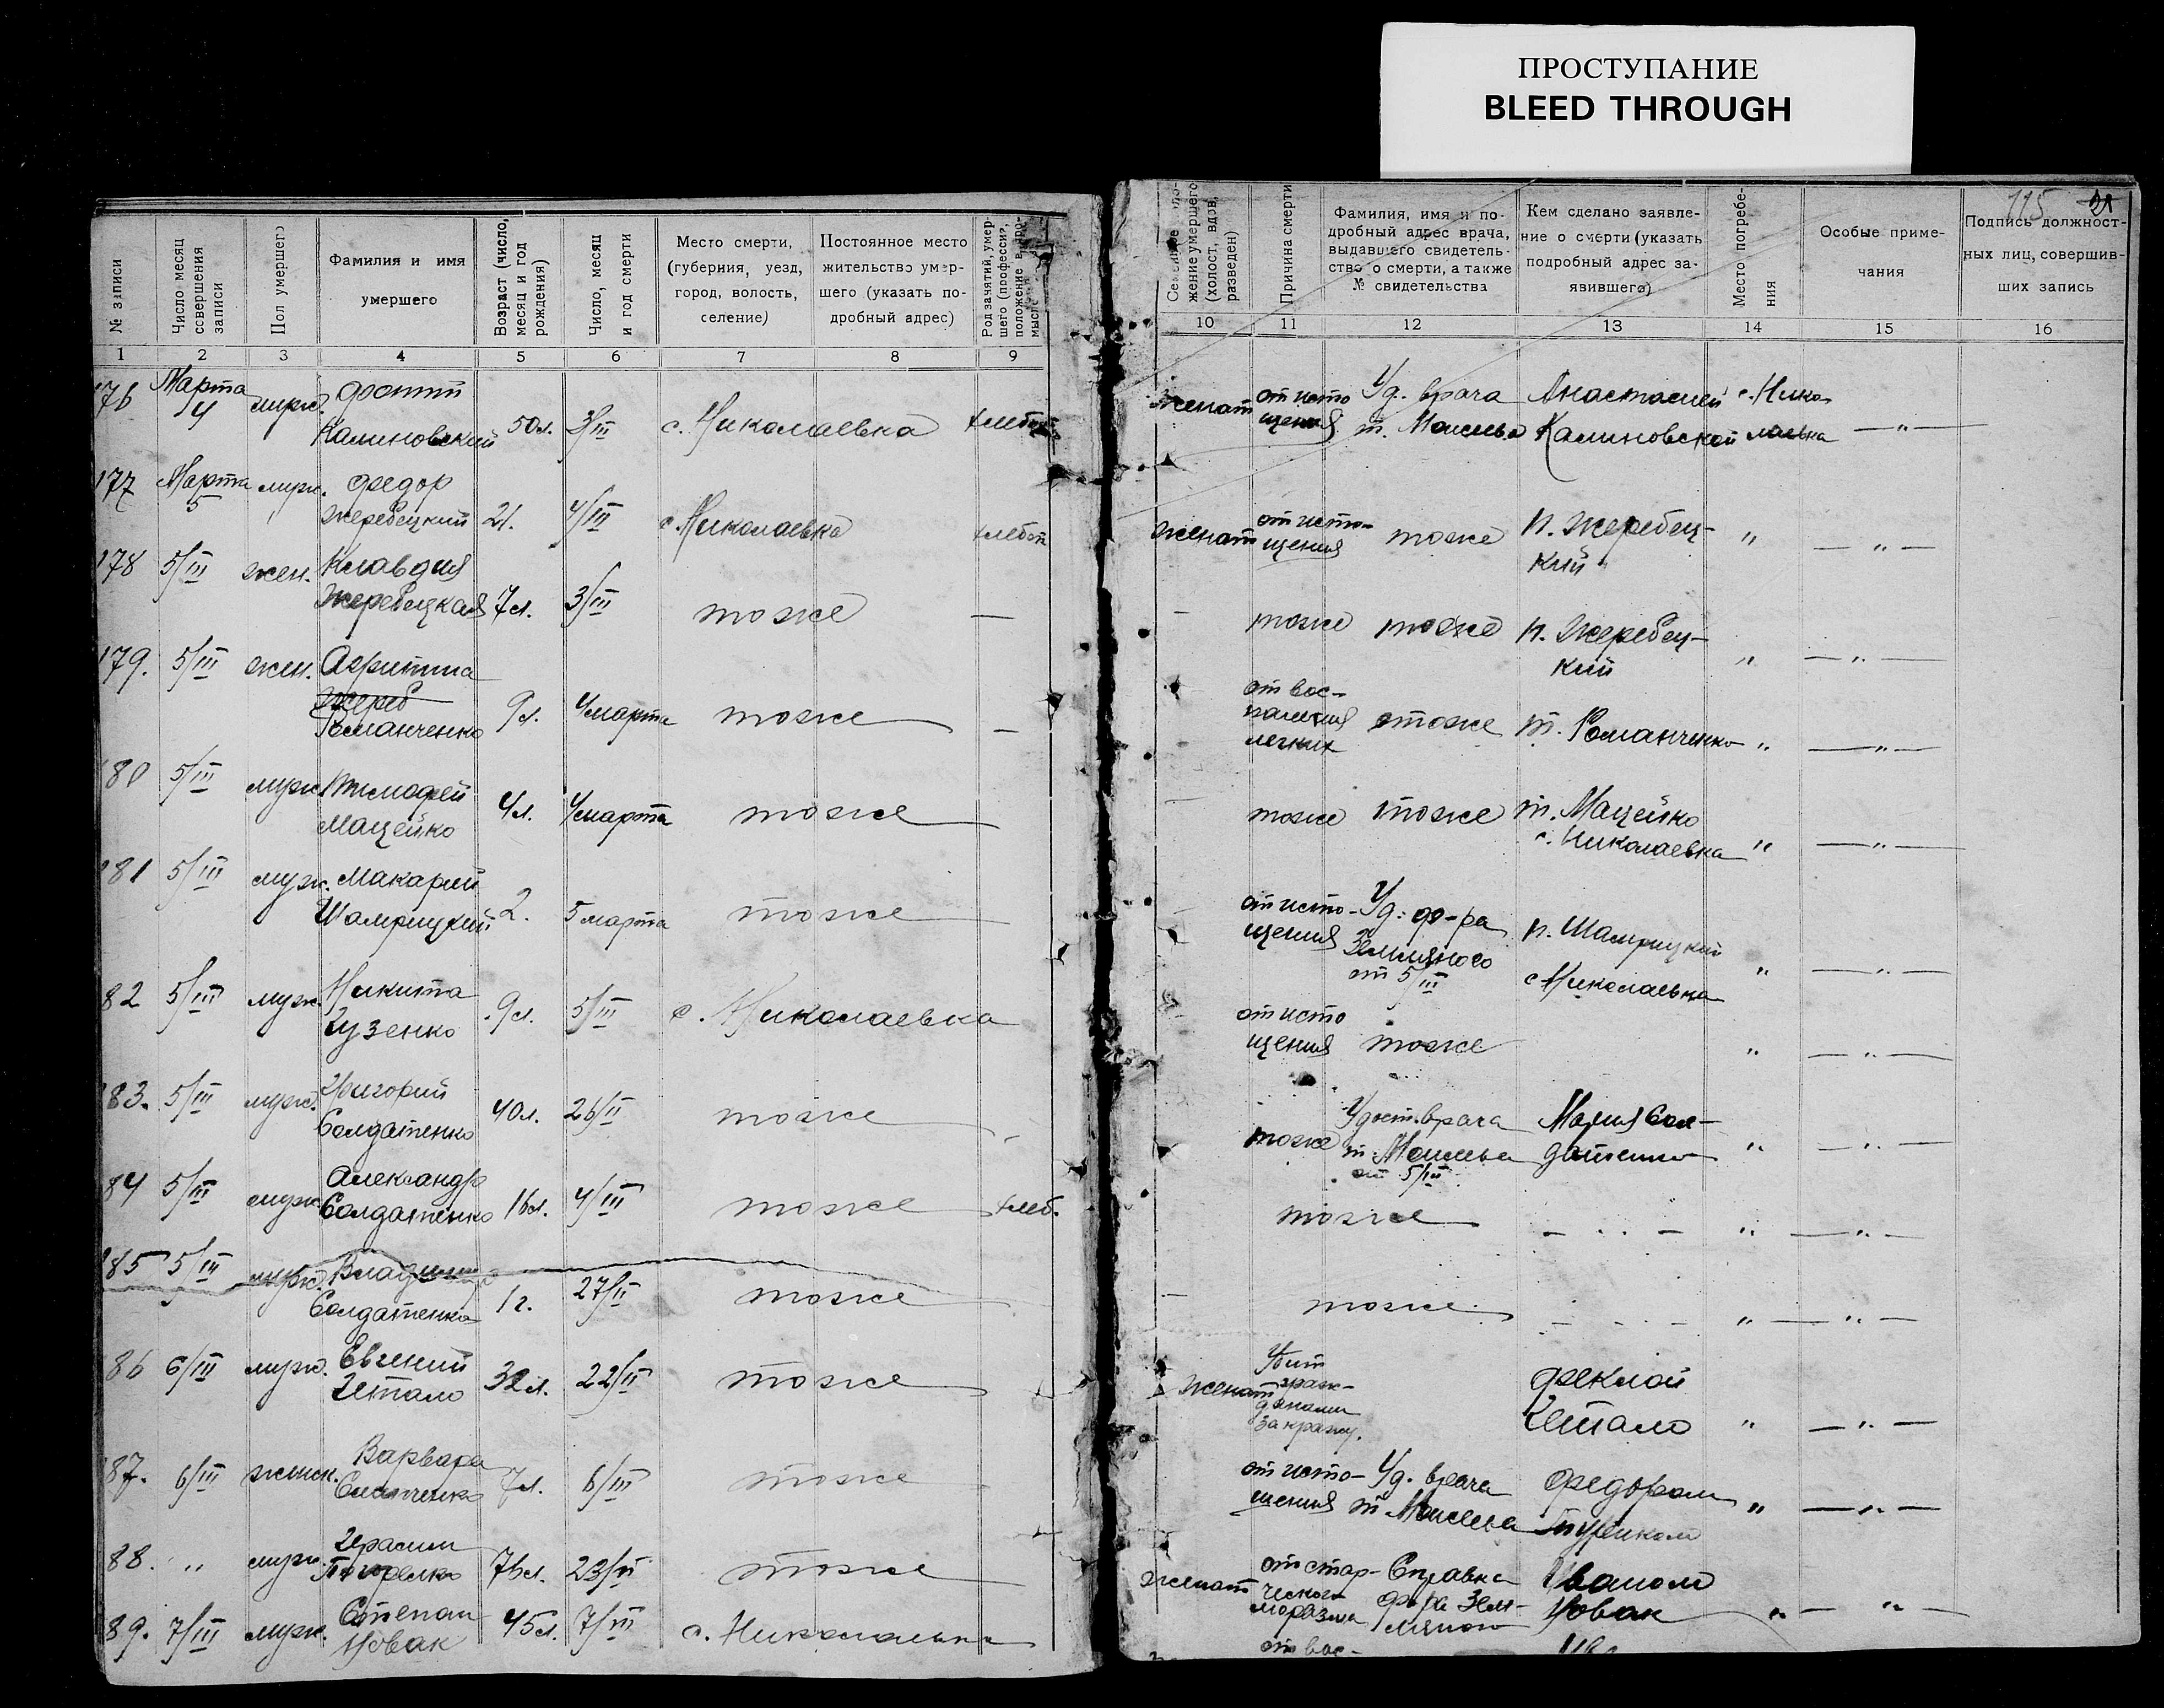 ПРОСТУПАНИЕ
BLEED THROUGH
115 21
№ записи
Число месяц совершения записи
Пол умершего
Фамилия и имя
умершего
Возраст (число, месяц и год рождения)
Число, месяц и год смерти
Место смерти,
(губерния, уезд,
город, волость,
селение)
Постоянное место
жительство умер-
шего (указать по-
дробный адрес)
Род занятий, умер-
шего (профессия,
положение в про-
1 2 3 4 5 6 7 8 9
жение умершего
(холост, вдов,
разведен)
Причина смерти
Фамилия, имя и по-
дробный адрес врача,
выдавшего свидетель-
ство о смерти, а также
№ свидетельства
Кем сделано заявле-
ние о смерти (указать
подробный адрес за-
явившего)
Место погребе-
ния
Особые приме-
чания
Подпись должност-
ных лиц, совершив-
ших запись
10 11 12 13 14 15 16
176 Марта 4 муж.
Калиновский 50л. 3/III с. Николаевка хлебоп.
женат от исто
щения Уд. врача
т. Моисеева Анастасией
Калиновской с. Нико
лаевка — " —
177 Марта 5 муж. Федор
Жеребецкий 2л. 4/III с. Николаевка хлебоп
женат от исто-
щения тоже п. Жеребец-
кий " — " —
178 5/III жен. Клавдия
Жеребецкая 7л. 3/III тоже —
— тоже тоже п. Жеребец-
кий " — " —
179. 5/III жен.
Жереб
Романченко 9л. 4 марта тоже —
от вос-
паления
легких тоже т. Романченко " — " —
180 5/III муж Тимофей
Мацейко 4л. 4 марта тоже
— тоже тоже т. Мацейко
с. Николаевка " — " —
181 5/III муж. Макарий
Шамрицкий 2. 5 марта тоже
— от исто-
щения Уд. ф-ра
Земляного
от 5/III п. Шамрицкий
с Николаевка " — " —
82 5/III муж. Никита
Гузенко 9л. 5/III с. Николаевка
от исто
щения тоже " — " —
83. 5/III муж. Григорий
Солдатенко 40л. 26/II тоже
тоже Удост. врача
т. Моисеева
от 5/III Мария Сол-
датенко " — " —
84 5/III муж. Александр
Солдатенко 16л. 4/III тоже хлеб.
тоже — " — " — " —
185 5/III муж. Владимир
Солдатенко 1г. 27/II тоже
— тоже — " — " — " —
86 6/III муж. Евгений
Гетало 32л. 22/II тоже
женат Убит
граж-
данами
за кражу. Феклой
Гетало " — " —
87. 6/III женск. Варвара
7л. 6/III тоже
от исто-
щения Уд. врача
т. Моисеева Федором
" — " —
88. " муж. Герасим
76л. 23/II тоже
женат от стар-
ческого
маразма Справка
ф-ра Зем-
ляного Иваном
Новак " — " —
89. 7/III муж. Степан
Новак 45л. 7/III с. Николаевка
от вос-